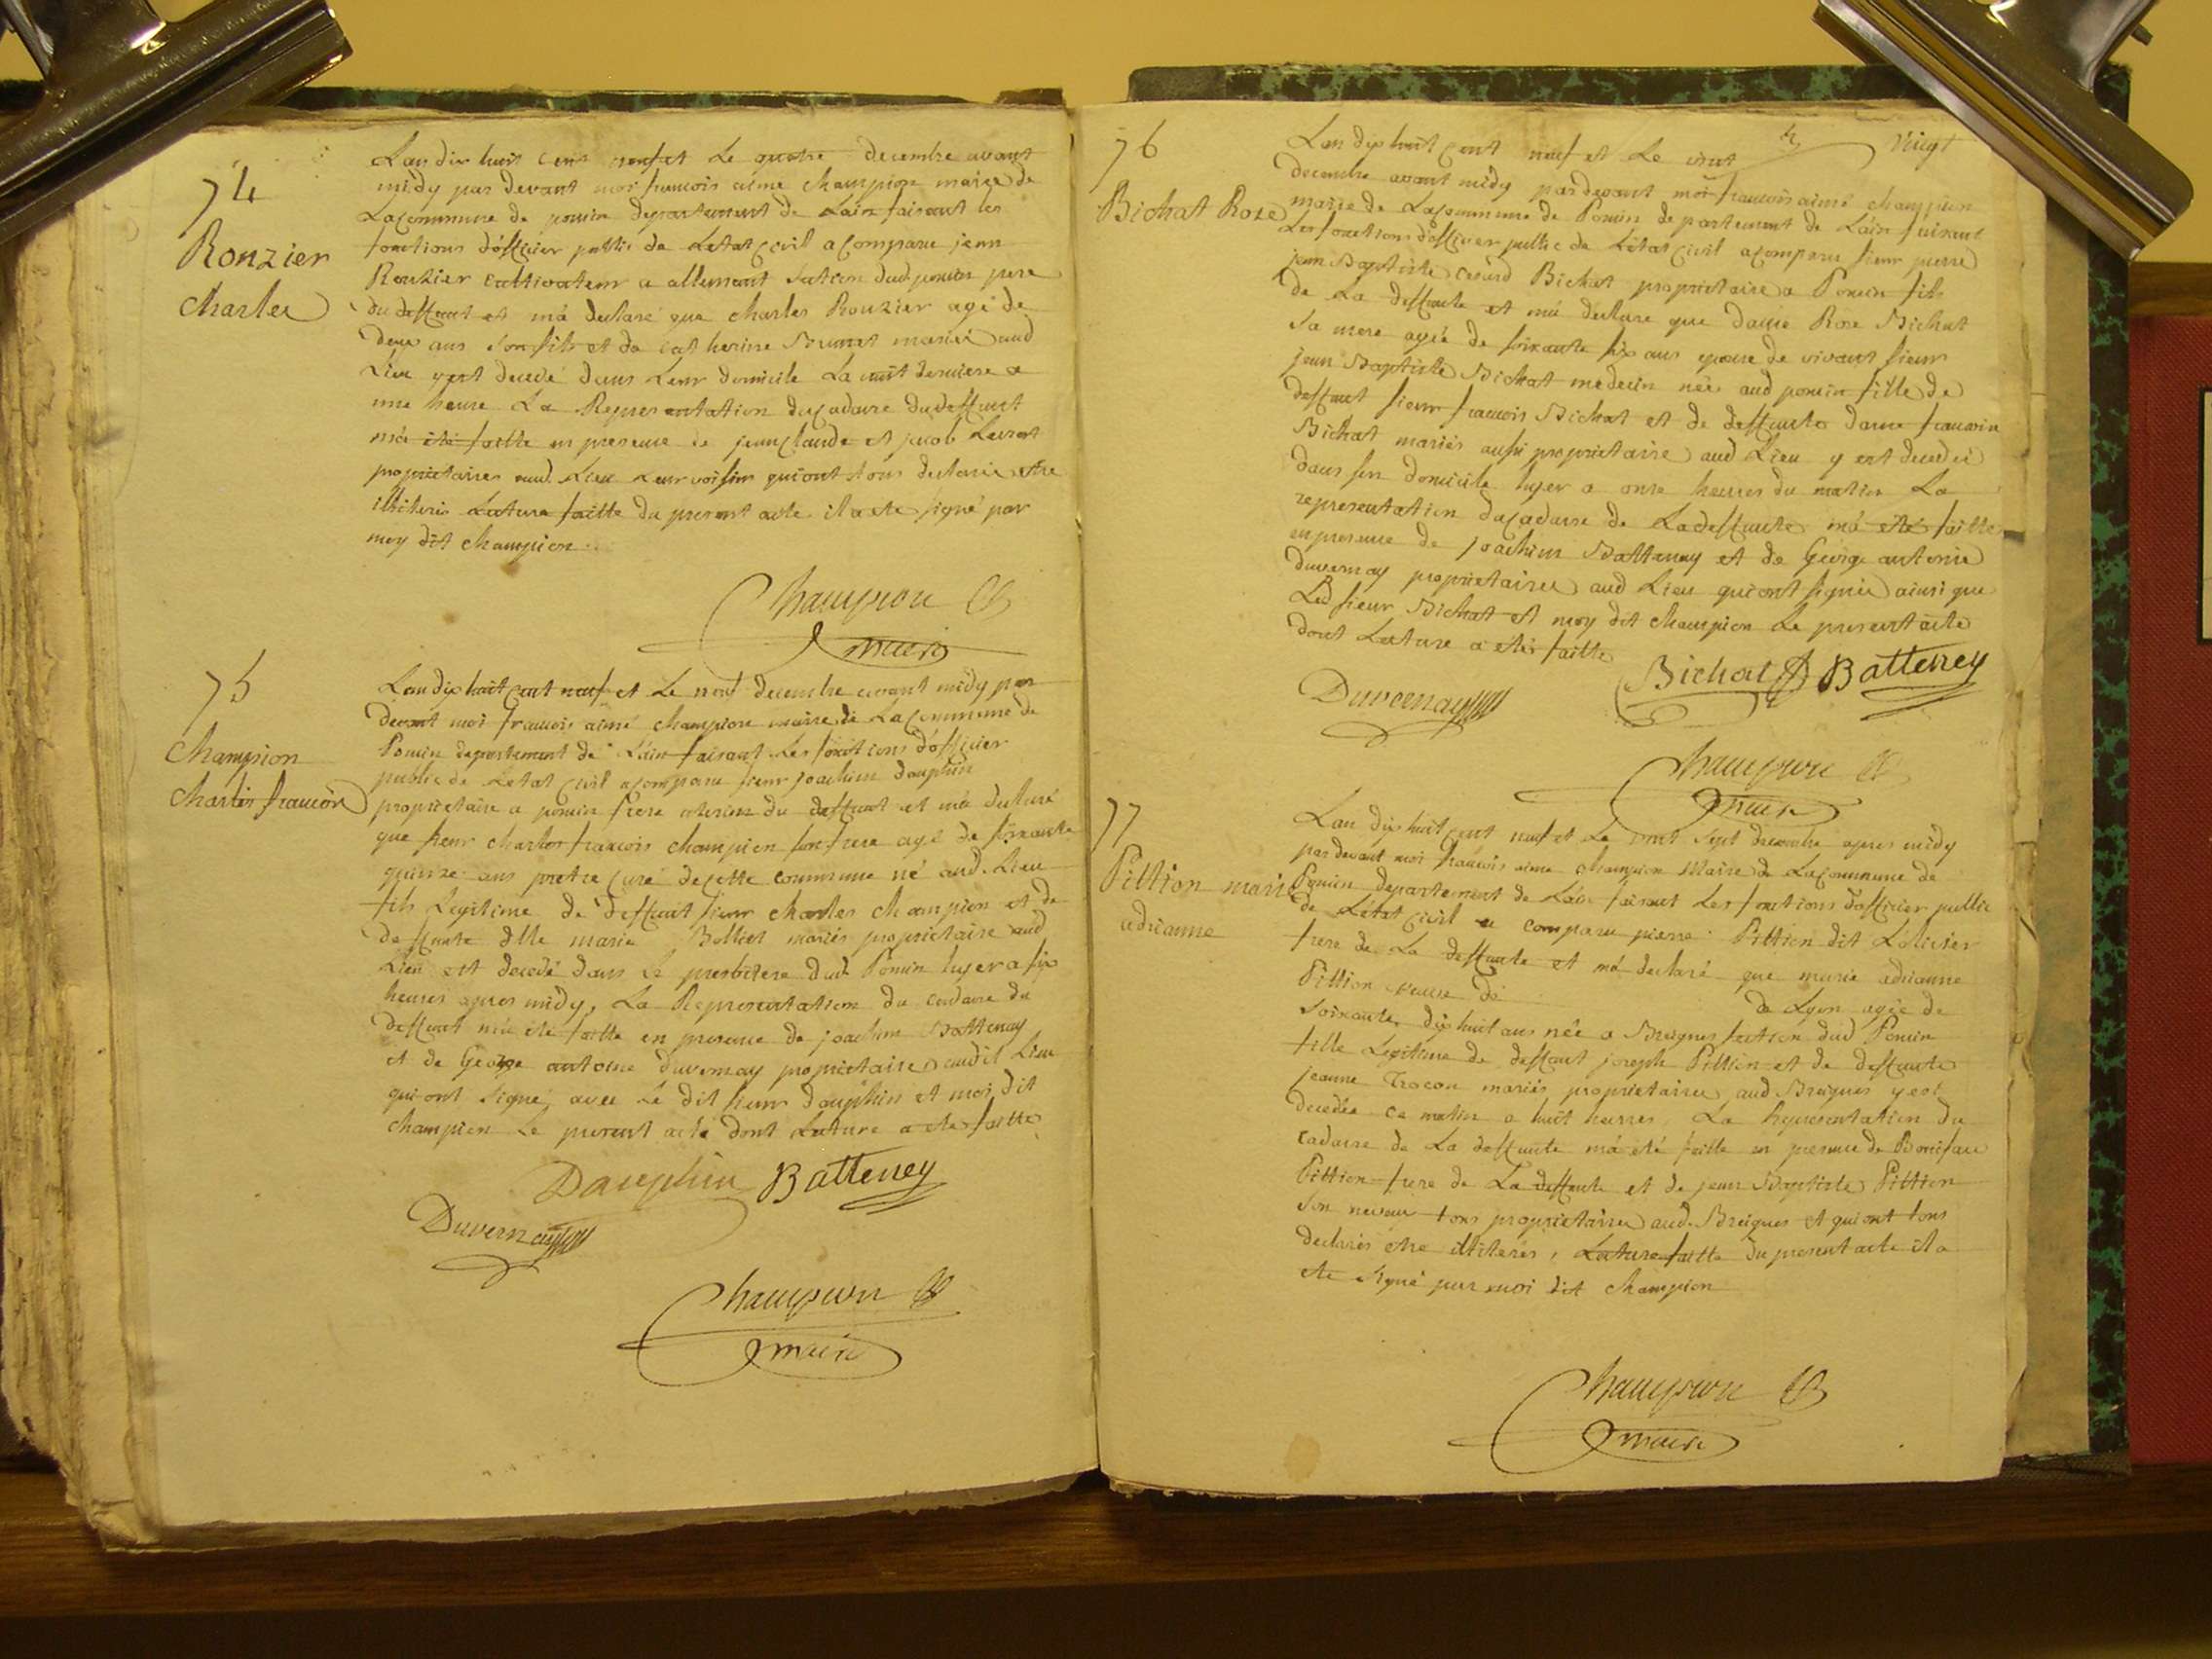 74
Ronzier
Charles
Lan dix huit cent neuf et le quatre decembre avant
midy par devant moi francois aimé champion maire de
La commune de poncin departement de Lain faisant les
fonctions d'officier public de Letat civil a comparu jean
Ronzier cultivateur a allement section dud poncin pere
du deffunt et m'a declaré que charles Ronzier agé de
deux ans son fils et de catherine Brunet mariés aud
Lieu y est decedé dans Leur domicile La nuit derniere a
une heure La Representation du cadavre du deffunt
m'a été faitte en presence de jean claude et jacob
proprietaires aud. Lieu Leur voisins qui ont tous declaré etre
illiterés Lecture faitte du present acte il a ete signé par
moy dit champion
Champion
maire
75
Champion
Charles francois
Lan dix huit cent neuf et Le neuf decembre avant midy par
devant moi francois aimé champion maire de La commune de
Poncin departement de L'ain faisant Les fonctions d'officier
public de Letat civil a comparu sieur joachim dauphin
proprietaire a poncin frere uterin du deffunt et m'a declaré
que sieur charles francois champion son frere agé de soixante
quinze ans pretre curé de cette commune né aud. Lieu
fils Legitime de deffunt sieur charles champion et de
deffunte dlle marie Bolliet mariés proprietaire aud
Lieu est decedé dans Le presbitere dud. Poncin hyer a six
heures apres midy, La Representation du cadavre du
deffunt m'a été faitte en presence de joachim Battenay
et de George antoine duvernay proprietaires audit Lieu
qui ont signé avec Le dit sieur dauphin et moi dit
champion Le present acte dont Lecture a ete faitte
Dauphin Batteney
Duvernay
Champion
maire
vingt
76
Bichat Roze
Lan dix huit cent neuf et Le vint
decembre avant midy pardevant moi francois aimé champion
maire de La commune de Poncin departement de L'ain faisant
Les fonctions d'officier public de L'état civil a comparu sieur pierre
jean Baptiste Bichat proprietaire a Poncin fils
de La deffunte et m'a declaré que dame Rose Bichat
sa mere agée de soixante six ans epouse de vivant sieur
jean Baptiste Bichat medecin née aud poncin fille de
deffunt sieur francois Bichat et de deffunte dame francoise
Bichat mariés aussi proprietaire aud Lieu y est decedée
dans son domicile hyer a onze heures du matin La
representation du cadavre de La deffunte m'a eté faitte
en presence de joachim Battenay et de George antoine
duvernay proprietaires aud Lieu qui ont signé ainsi que
Led sieur Bichat et moy dit champion Le present acte
dont Lecture a eté faitte
Bichat Batteney
Duvernay
Champion
maire
77
Pittion marie
adrianne
Lan dix huit cent neuf et Le vint sept decembre apres midy
par devant moi francois aime champion Maire de La commune de
Poncin departement de L'ain faisant Les fonctions d'officier public
de L'état civil a comparu pierre Pittion dit L'olivier
frere de La deffunte et m'a declaré que marie adrianne
Pittion veuve de de Lyon agée de
soixante dix huit ans née a Breignes section dud Poncin
fille Legitime de deffunt joseph Pittion et de deffunte
jeanne Trocon mariés proprietaires aud Breignes y est
decedée ce matin a huit heures, La Representation du
cadavre de La deffunte m'a eté faitte en presence de Boniface
Pittion frere de La deffunte et de jean Baptiste Pittion
son neveu tous proprietaires aud. Breignes et qui ont tous
declarés etre illiterés, Lecture faitte du present acte il a
ete signé par moi dit champion
Champion
maire